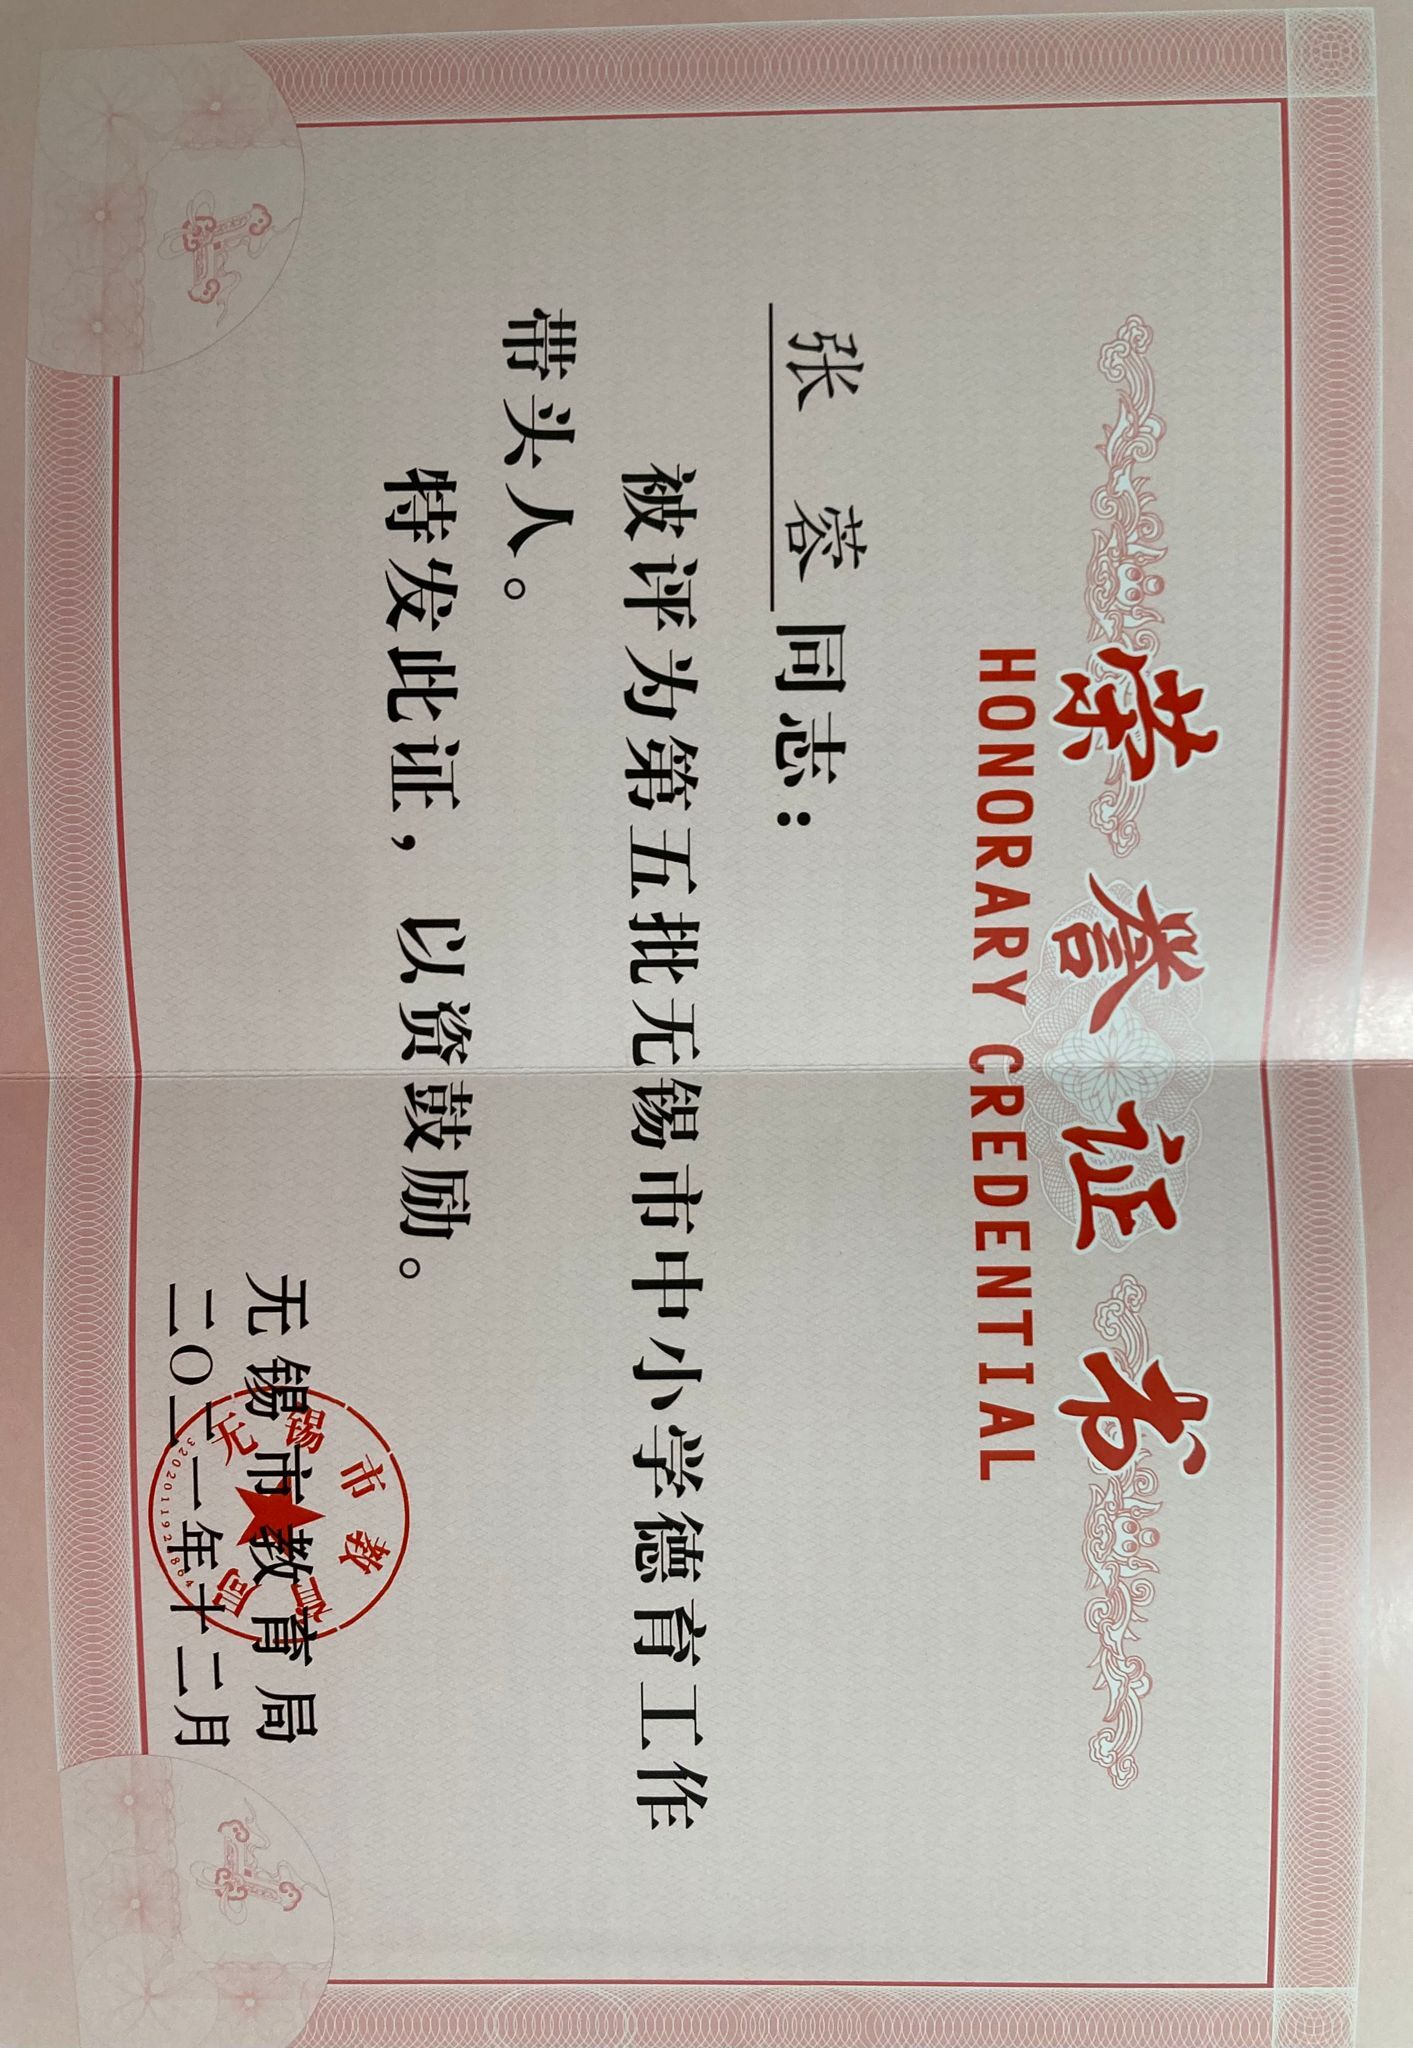 荣誉证书
HONORARY CREDENTIAL
张 蓉同志：
被评为第五批无锡市中小学德育工作
带头人。
特发此证，以资鼓励。
无锡市教育局
二〇二一年十二月
无锡市教育局
3202011928864